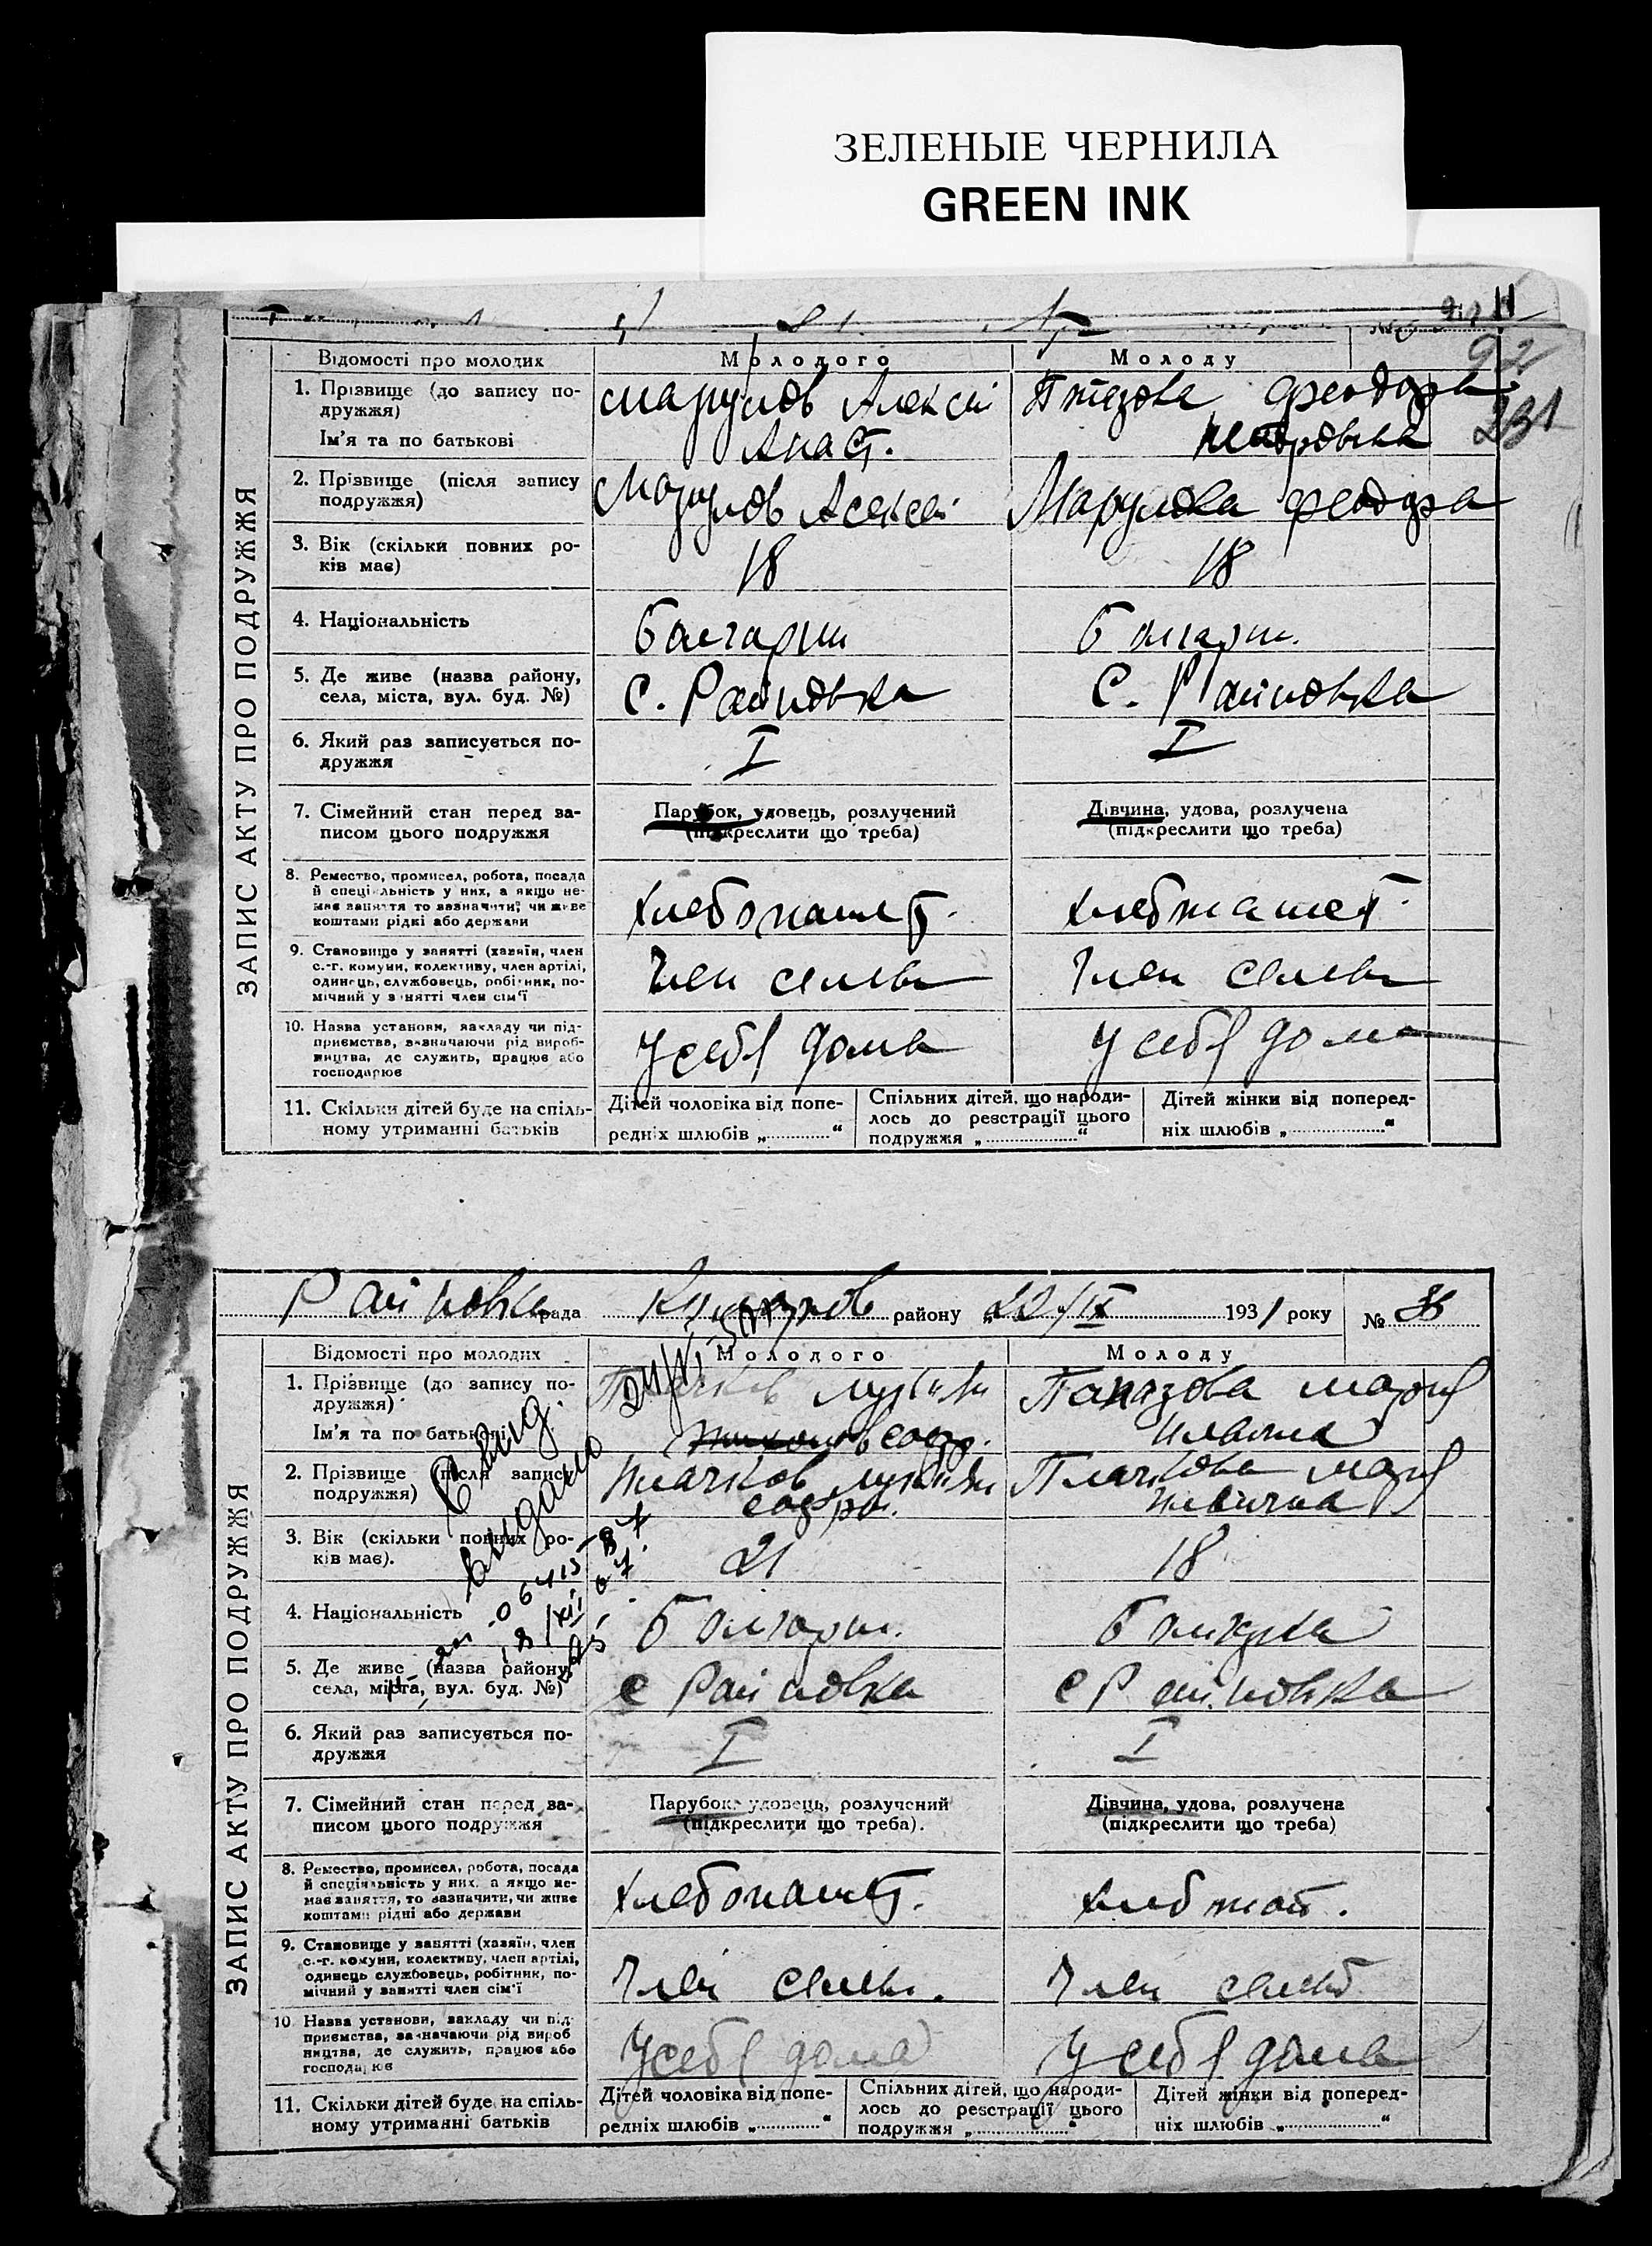 ЗЕЛЕНЫЕ ЧЕРНИЛА
GREEN INK
92
231
ЗАПИС АКТУ ПРО ПОДРУЖЖЯ
Відомості про молодих Молодого Молоду
1. Прізвище (до запису по-
дружжя)
Ім'я та по батькові
Марулов Алексей
Анаст.
Феодора
Петровна
2. Прізвище (після запису
подружжя)
Марулов Алексей Марулова Феодора
3. Вік (скільки повних ро-
ків має)
18 18
4. Національність
болгарин болгарин.
5. Де живе (назва району,
села, міста, вул. буд. №)
С. Райновка С. Райновка
6. Який раз записується по-
дружжя
I I
7. Сімейний стан перед за-
писом цього подружжя
Парубок, удовець, розлучений
(підкреслити що треба)
Дівчина, удова, розлучена
(підкреслити що треба)
8. Ремество, промисел, робота, посада
й спеціальність у них, а якщо не-
має заняття то зазначити, чи живе
коштами рідні або держави
хлебопашет. хлебпашет.
9. Становище у занятті (хазяїн, член
с.-г. комуни, колективу, член артілі,
одинець, службовець, робітник, по-
мічний у занятті член сім'ї
Член семьи Член семьи
10. Назва установи, закладу чи під-
приємства, зазначаючи рід вироб-
ництва, де служить, працює або
господарює
У себя дома У себя дома
11. Скільки дітей буде на спіль-
ному утриманні батьків
Дітей чоловіка від попе-
редніх шлюбів „ “
Спільних дітей, що народи-
лось до реєстрації цього
подружжя „ “
Дітей жінки від поперед-
ніх шлюбів „ “
Райновка рада району „22/IX 1931 року № 36
ЗАПИС АКТУ ПРО ПОДРУЖЖЯ
Відомості про молодих Молодого Молоду
1. Прізвище (до запису по-
дружжя)
Ім'я та по батькові
Папазова Мария
Ильична
Свид.
видано
2. Прізвище (після запису
подружжя)
Плачков Плачкова Мария
3. Вік (скільки повних ро-
ків має).
21 18
4. Національність
болгарин. болгарка
5. Де живе (назва району,
села, міста, вул. буд. №)
с Райновка с Райновка
6. Який раз записується по-
дружжя
I I
7. Сімейний стан перед за-
писом цього подружжя
Парубок, удовець, розлучений
(підкреслити що треба).
Дівчина, удова, розлучена
(підкреслити що треба)
8. Ремество, промисел, робота, посада
й спеціяльність у них, а якщо не-
має заняття, то зазначити, чи живе
коштами рідні або держави
хлебопашет. хлебпаш.
9. Становище у занятті (хазяїн, член
с.-г. комуни, колективу, член артілі,
одинець службовець, робітник, по-
мічний у занятті член сім'ї
Член семьи. Член семьи
10 Назва установи, закладу чи під-
приємства, зазначаючи рід вироб
ництва, де служить, працює або
господарює
У себя дома У себя дома
11. Скільки дітей буде на спіль-
ному утриманні батьків
Дітей чоловіка від попе-
редніх шлюбів „ “
Спільних дітей, що народи-
лось до реєстрації цього
подружжя „ “
Дітей жінки від поперед-
ніх шлюбів „ “